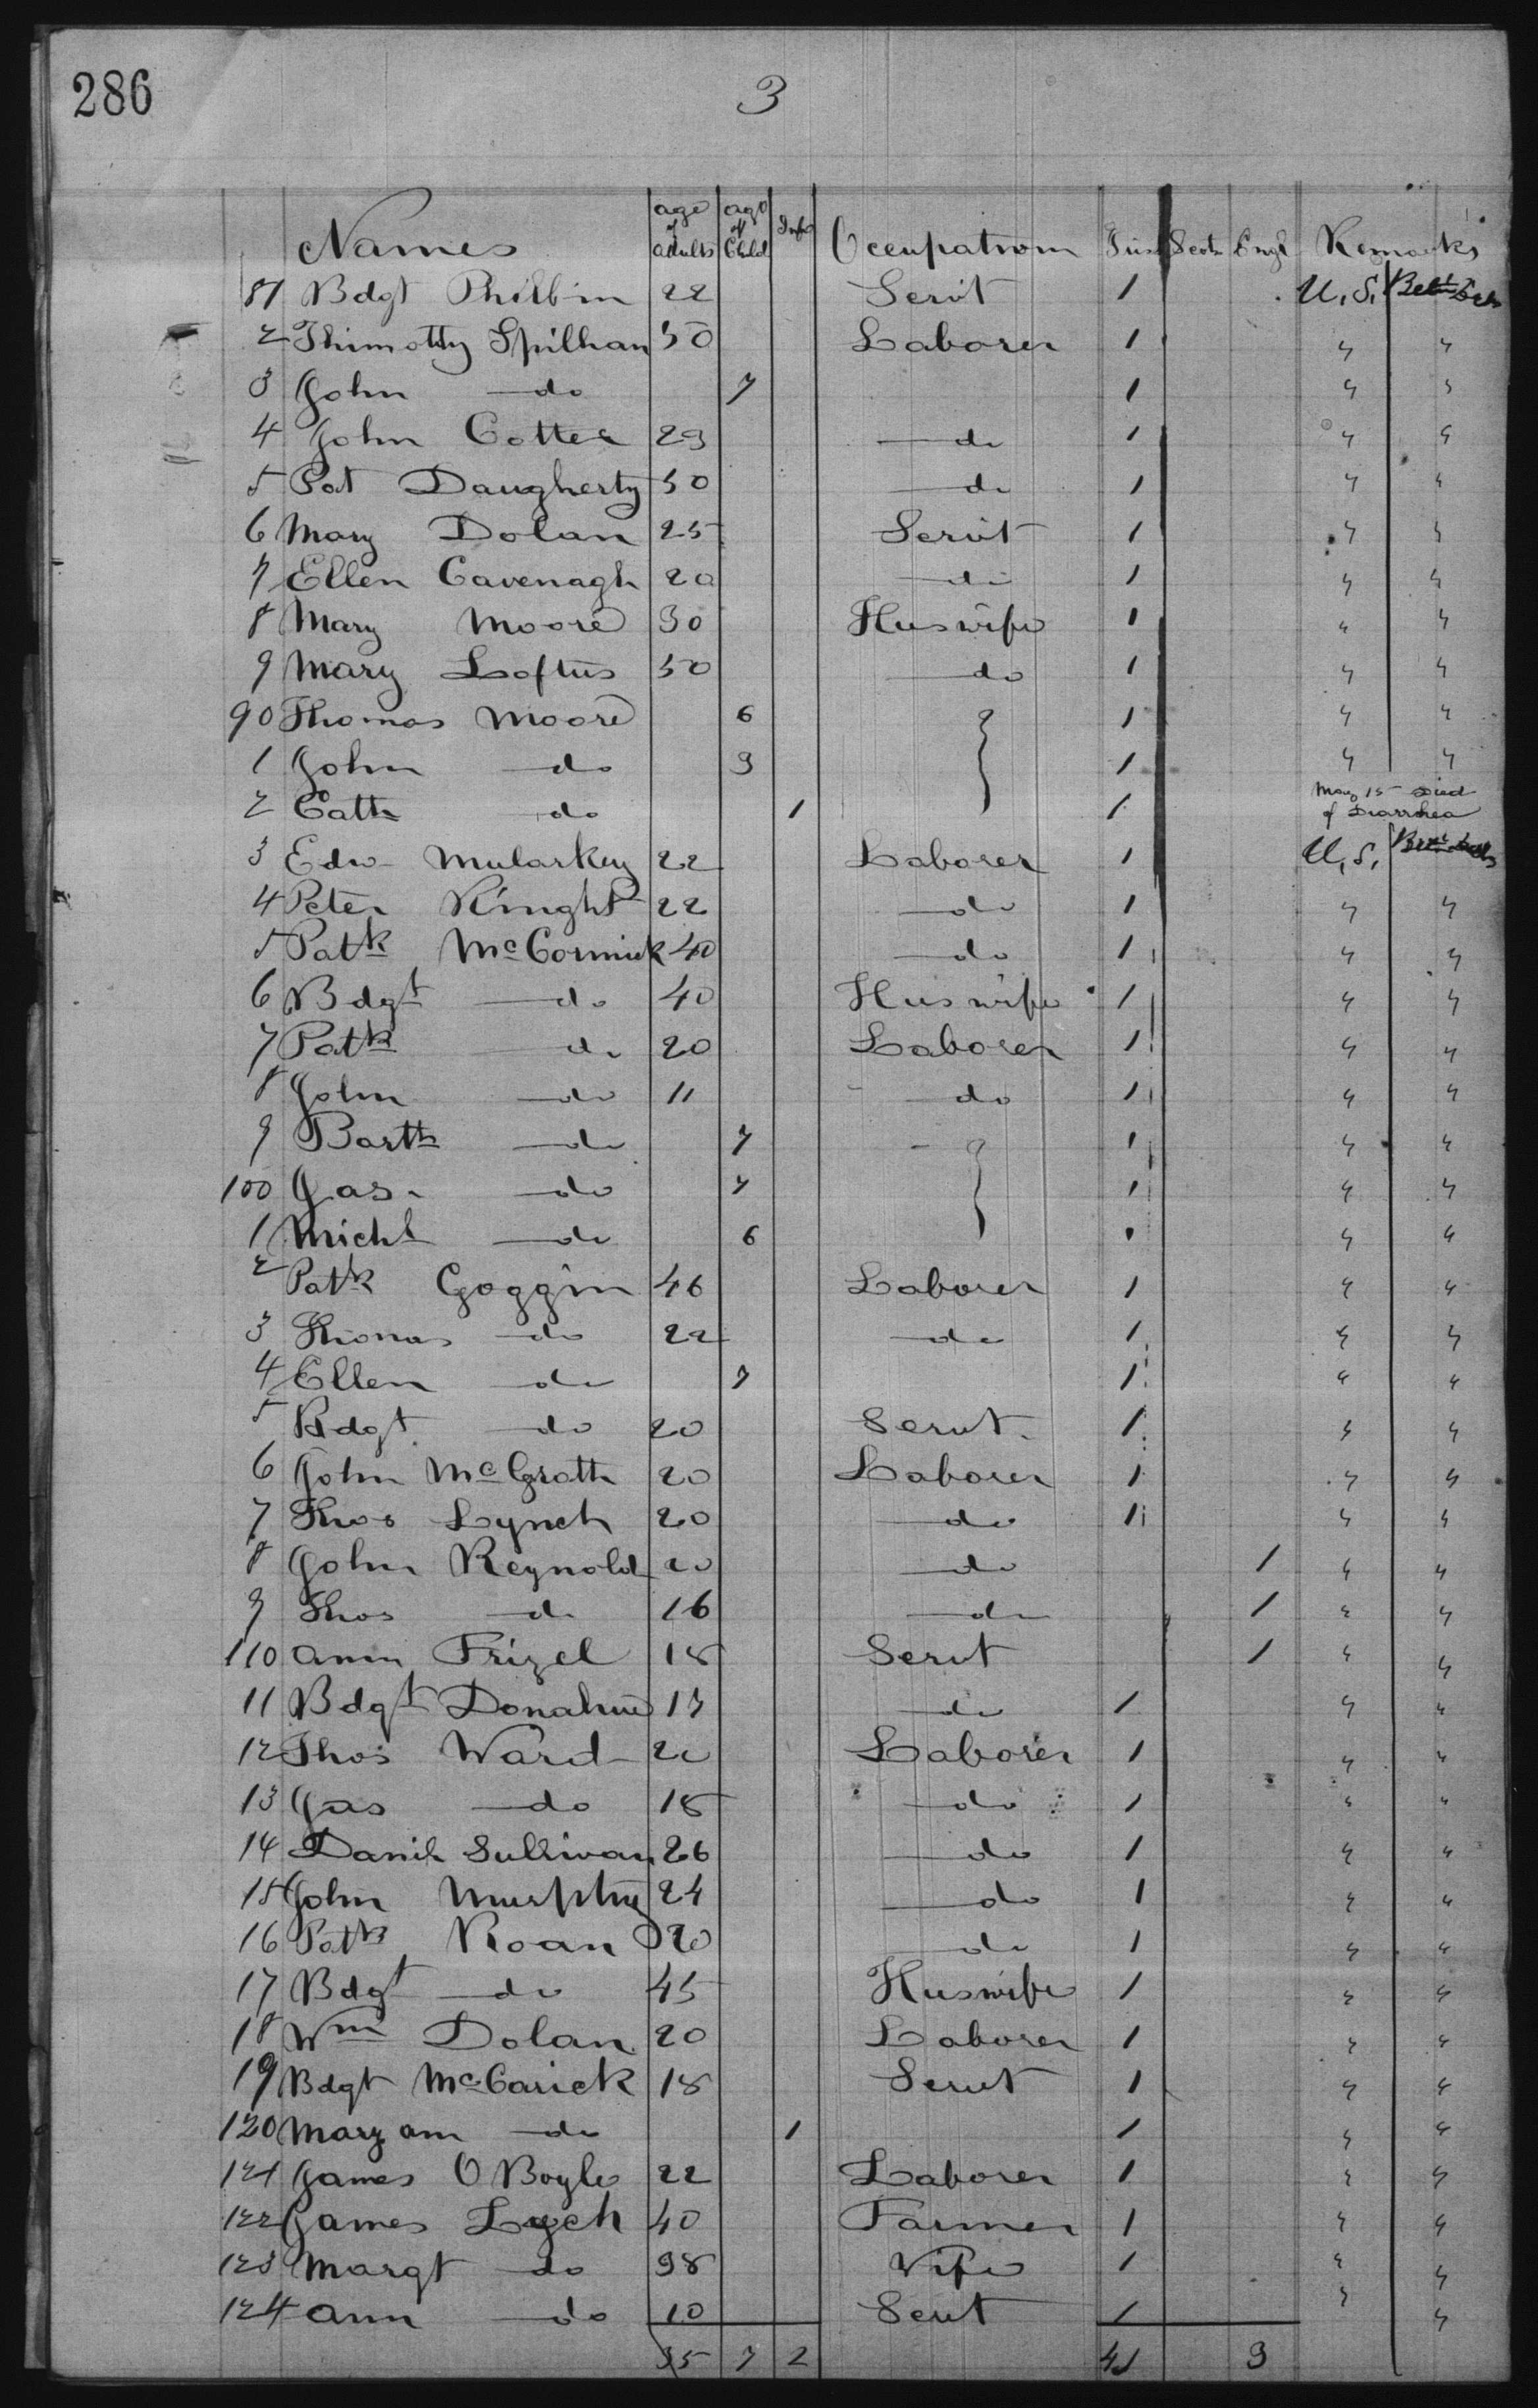 286
3
Names age of adults ago of Child Inf Occupation Iris Scot Engl Remarks
81 Bdgt Philbin 22 Servt 1 U.S.
2 Thimothy Spilhan 50 Laborer 1 " "
3 John do 7 1 " "
4 John Cotter 29 do 1 " "
5 Pat Daugherty 50 do 1 " "
6 Mary Dolan 25 Servt 1 " "
7 Ellen Cavenagh 20 do 1 " "
8 Mary Moore 30 Huswife 1 " "
9 Mary Loftus 50 do 1 " "
90 Thomas Moore 6 1 " "
1 John do 9 1 " "
2 Cath do 1 1 May 15 Died of Diarrhea
3 Edw Mularkey 22 Laborer 1 U.S.
4 Peter Kinght 22 do 1 " "
5 Patk McCormick 40 do 1 " "
6 Bdgt do 40 Huswife 1 " "
7 Patk do 20 Laborer 1 " "
8 John do 11 do 1 " "
9 Barth do 7 1 " "
100 Jas do 7 1 " "
1 Michl do 6 1 " "
2 Patk Goggin 46 Laborer 1 " "
3 Thomas do 22 do 1 " "
4 Ellen do 7 1 " "
5 Bdgt do 20 Servt 1 " "
6 John McGrath 20 Laborer 1 " "
7 Thos Lynch 20 do 1 " "
8 John Reynold 20 do 1 " "
9 Thos do 16 do 1 " "
110 Ann Frizel 18 Servt 1 " "
11 Bdgt Donahue 17 do 1 " "
12 Thos Ward 20 Laborer 1 " "
13 Jas do 18 do 1 " "
14 Danil Sullivan 26 do 1 " "
15 John Murphy 24 do 1 " "
16 Patk Roan 20 do 1 " "
17 Bdgt do 45 Huswife 1 " "
18 Wm Dolan 20 Laborer 1 " "
19 Bdgt McCarick 18 Servt 1 " "
120 Mary ann do 1 1 " "
121 James O Boyle 22 Laborer 1 " "
122 James Lych 40 Farmer 1 " "
123 Margt do 38 Wife 1 " "
124 Ann do 10 Sevt 1 " "
35 7 2 41 3